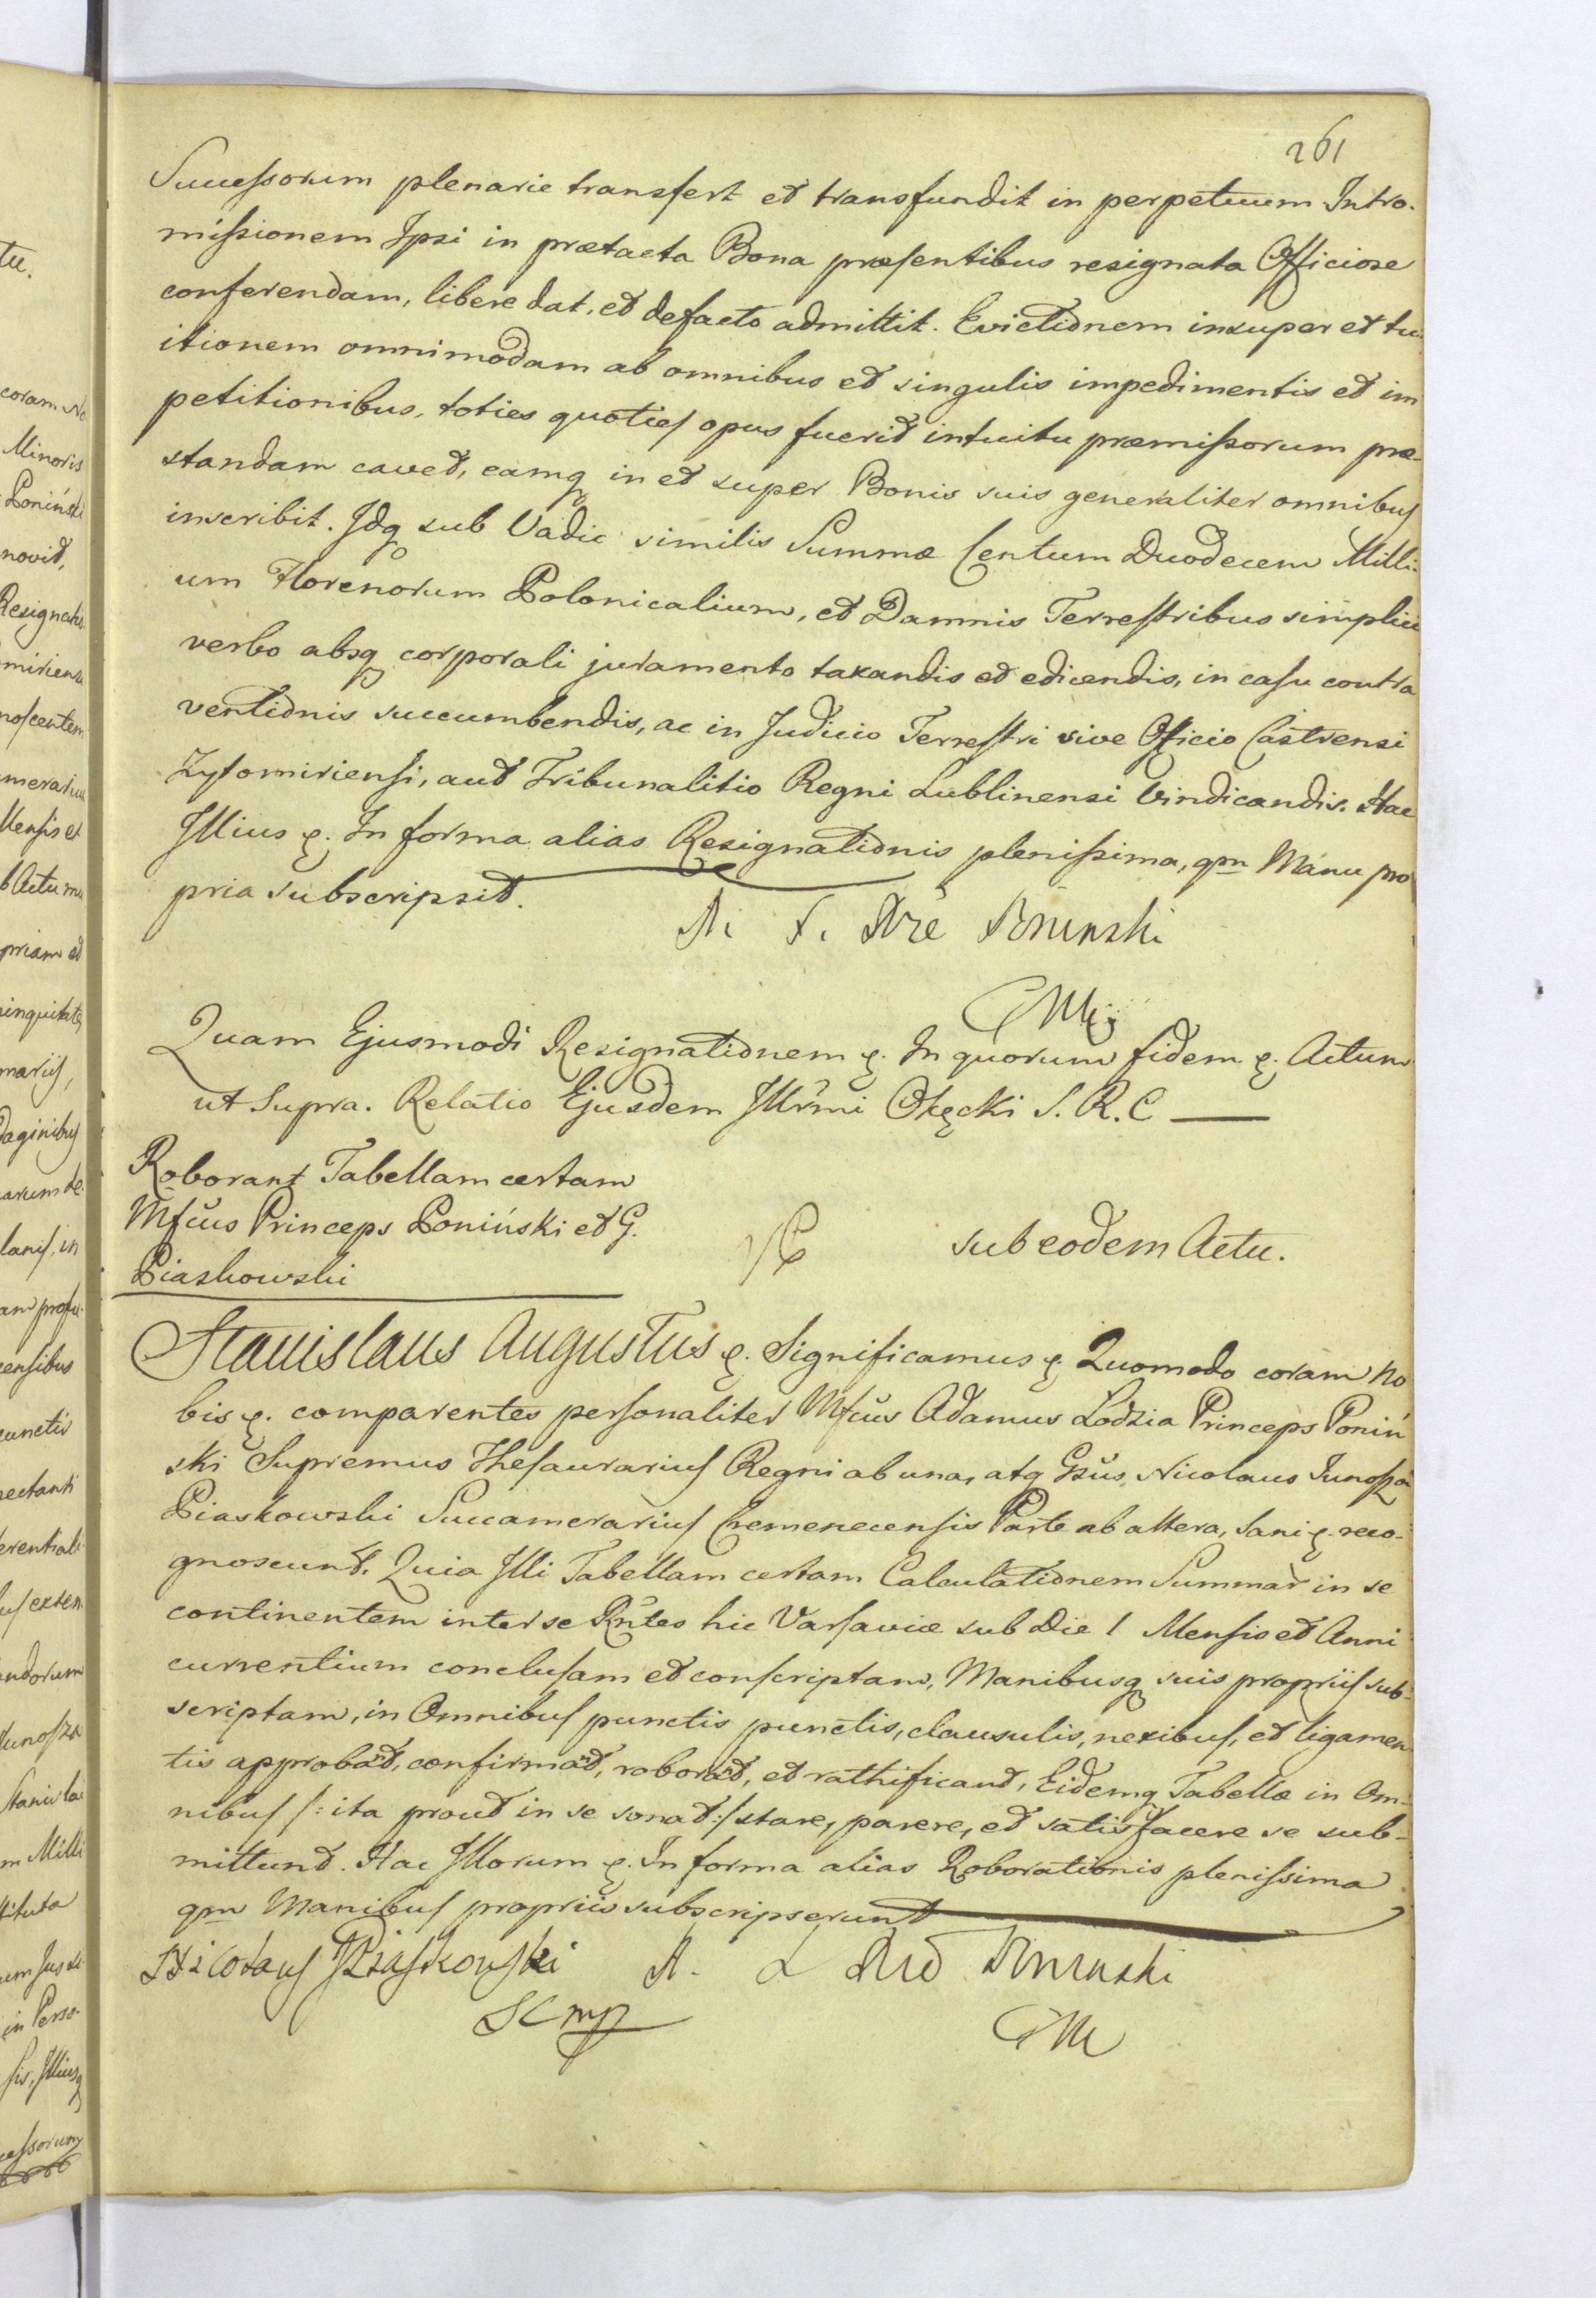 261
Successorum plenarie transfert et transfundit in perpetuum. Intro-
missionem Ipsi in prætacta Bona præsentibus resignata Officiose
conferendam, libere dat, et defacto admittit. Evictionem insuper et tu-
itionem omnimodam ab omnibus et singulis impedimentis et im
petitionibus, toties quoties opus fuerit intuitu præmissorum præ-
standam cavet, eamq in et super Bonis suis generaliter omnibus
inscribit. Idq sub Vadio similis Summæ Centum Duodecem Milli-
um Florenorum Polonicalium, et Damnis Terrestribus simplici
verbo absq corporali juramento taxandis et edicendis, in casu contra
ventionis succumbendis, ac in Judicio Terrestri sive Officio Castrensi
Zytomiriensi, aut Tribunalitio Regni Lublinensi Vindicandis. Hac
Illius &. In forma alias Resignationis plenissima, qm Manu pro
pria subscripsit.
Quam Ejusmodi Resignationem &. In quorum fidem &. Actum
ut Supra. Relatio Ejusdem Illrmi Okęcki S. R. C
Roborant Tabellam certam
Mfcus Princeps Poniński et G.
Piaskowski
sub eodem Actu.
Stanislaus Augustus &. Significamus &. Quomodo coram No
bis &. comparentes personaliter Mfcus Adamus Lodzia Princeps Poniń
ski Supremus Thesaurarius Regni ab una, atq Gsus Nicolaus Junosza
Piaskowski Succamerarius Cremenecensis Parte ab altera, Sani &. reco-
gnoscunt. Quia Illi Tabellam certam Calculationem Summar in se
continentem inter se Rntes hic Varsaviæ sub Die 1 Mensis et Anni
currentium conclusam et conscriptam, Manibusq suis propriis sub-
scriptam, in Omnibus punctis punctis, clausulis, nexibus, et ligamen
tis approbant, confirmant, roborant, et rathificant, Eidemq Tabellæ in Om-
nibus /: ita prout in se sonat :/ stare, parere, et satisfacere se sub-
mittunt. Hac Illorum &. In forma alias Roborationis plenissima
qm Manibus propriis subscripserunt
Nicolaus JPiaskowski
SC mp